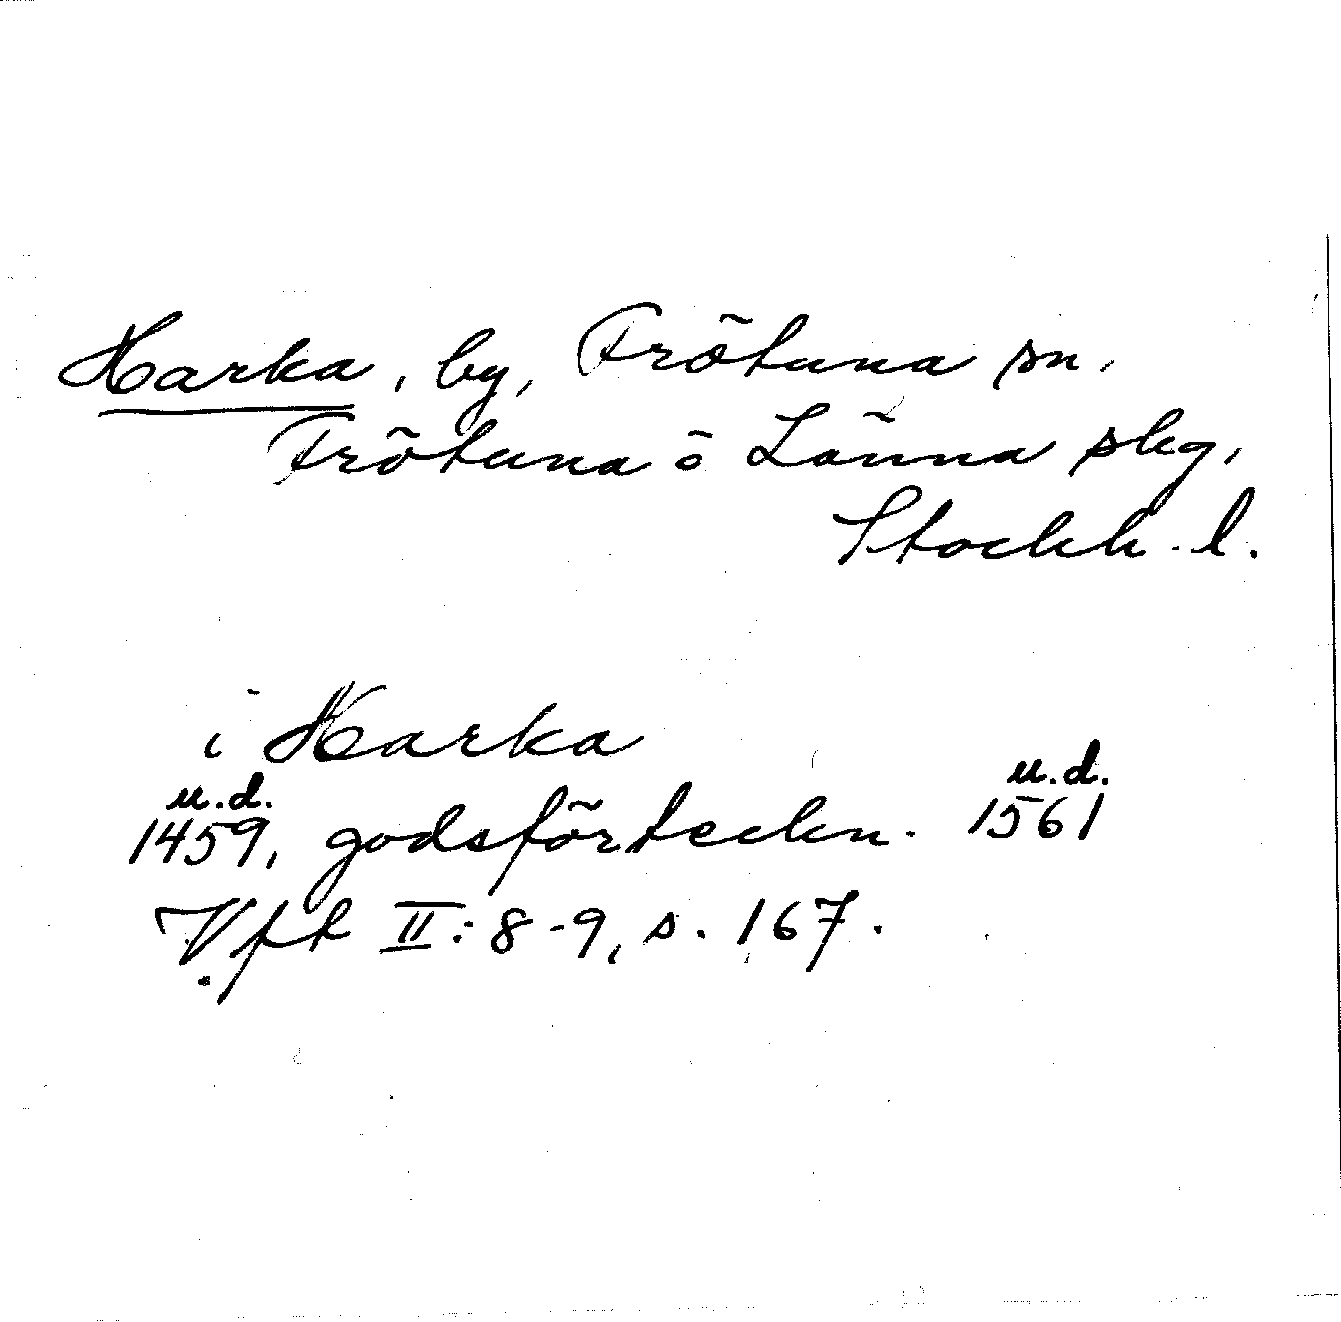 Harka, by, Frötuna sn,
Frötuna o Länna skg,
Stockh. l.
i Harka
u.d. u.d.
1459, godsförteckn. 1561
Vfr II: 8-9, s. 167.